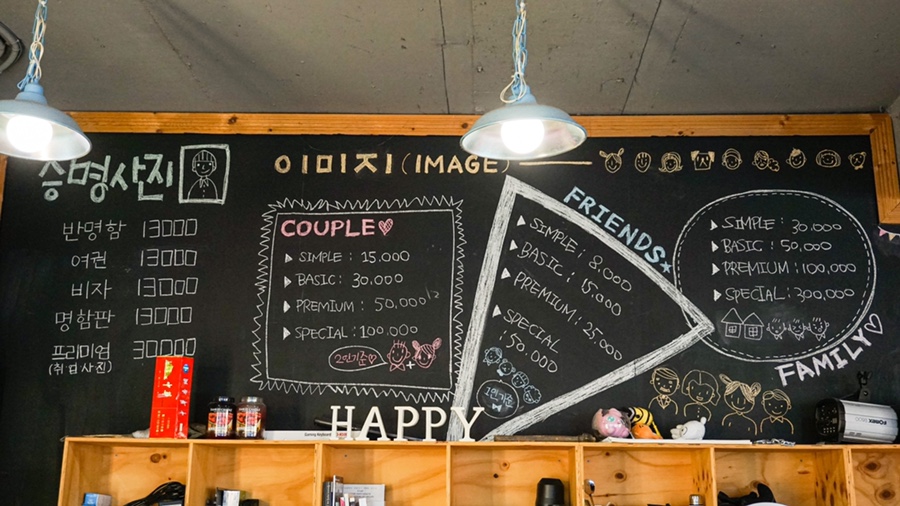 증명사진
반명함 13000
여권 13000
비자 13000
명함판 13000
프리미엄 30000
(취업사진)
이미지 (IMAGE)
COUPLE
SIMPLE : 15.000
BASIC : 30.000
PREMIUM : 50,000
SPECIAL : 100,000
2인기준
FRIENDS
SIMPLE : 8.000
BASIC : 15.000
PREMIUM : 25,000
SPECIAL
: 50.000
1인기준
SIMPLE : 30.000
BASIC : 50,000
PREMIUM : 100,000
SPECIAL : 300,000
FAMILY
HAPPY
FOMEX